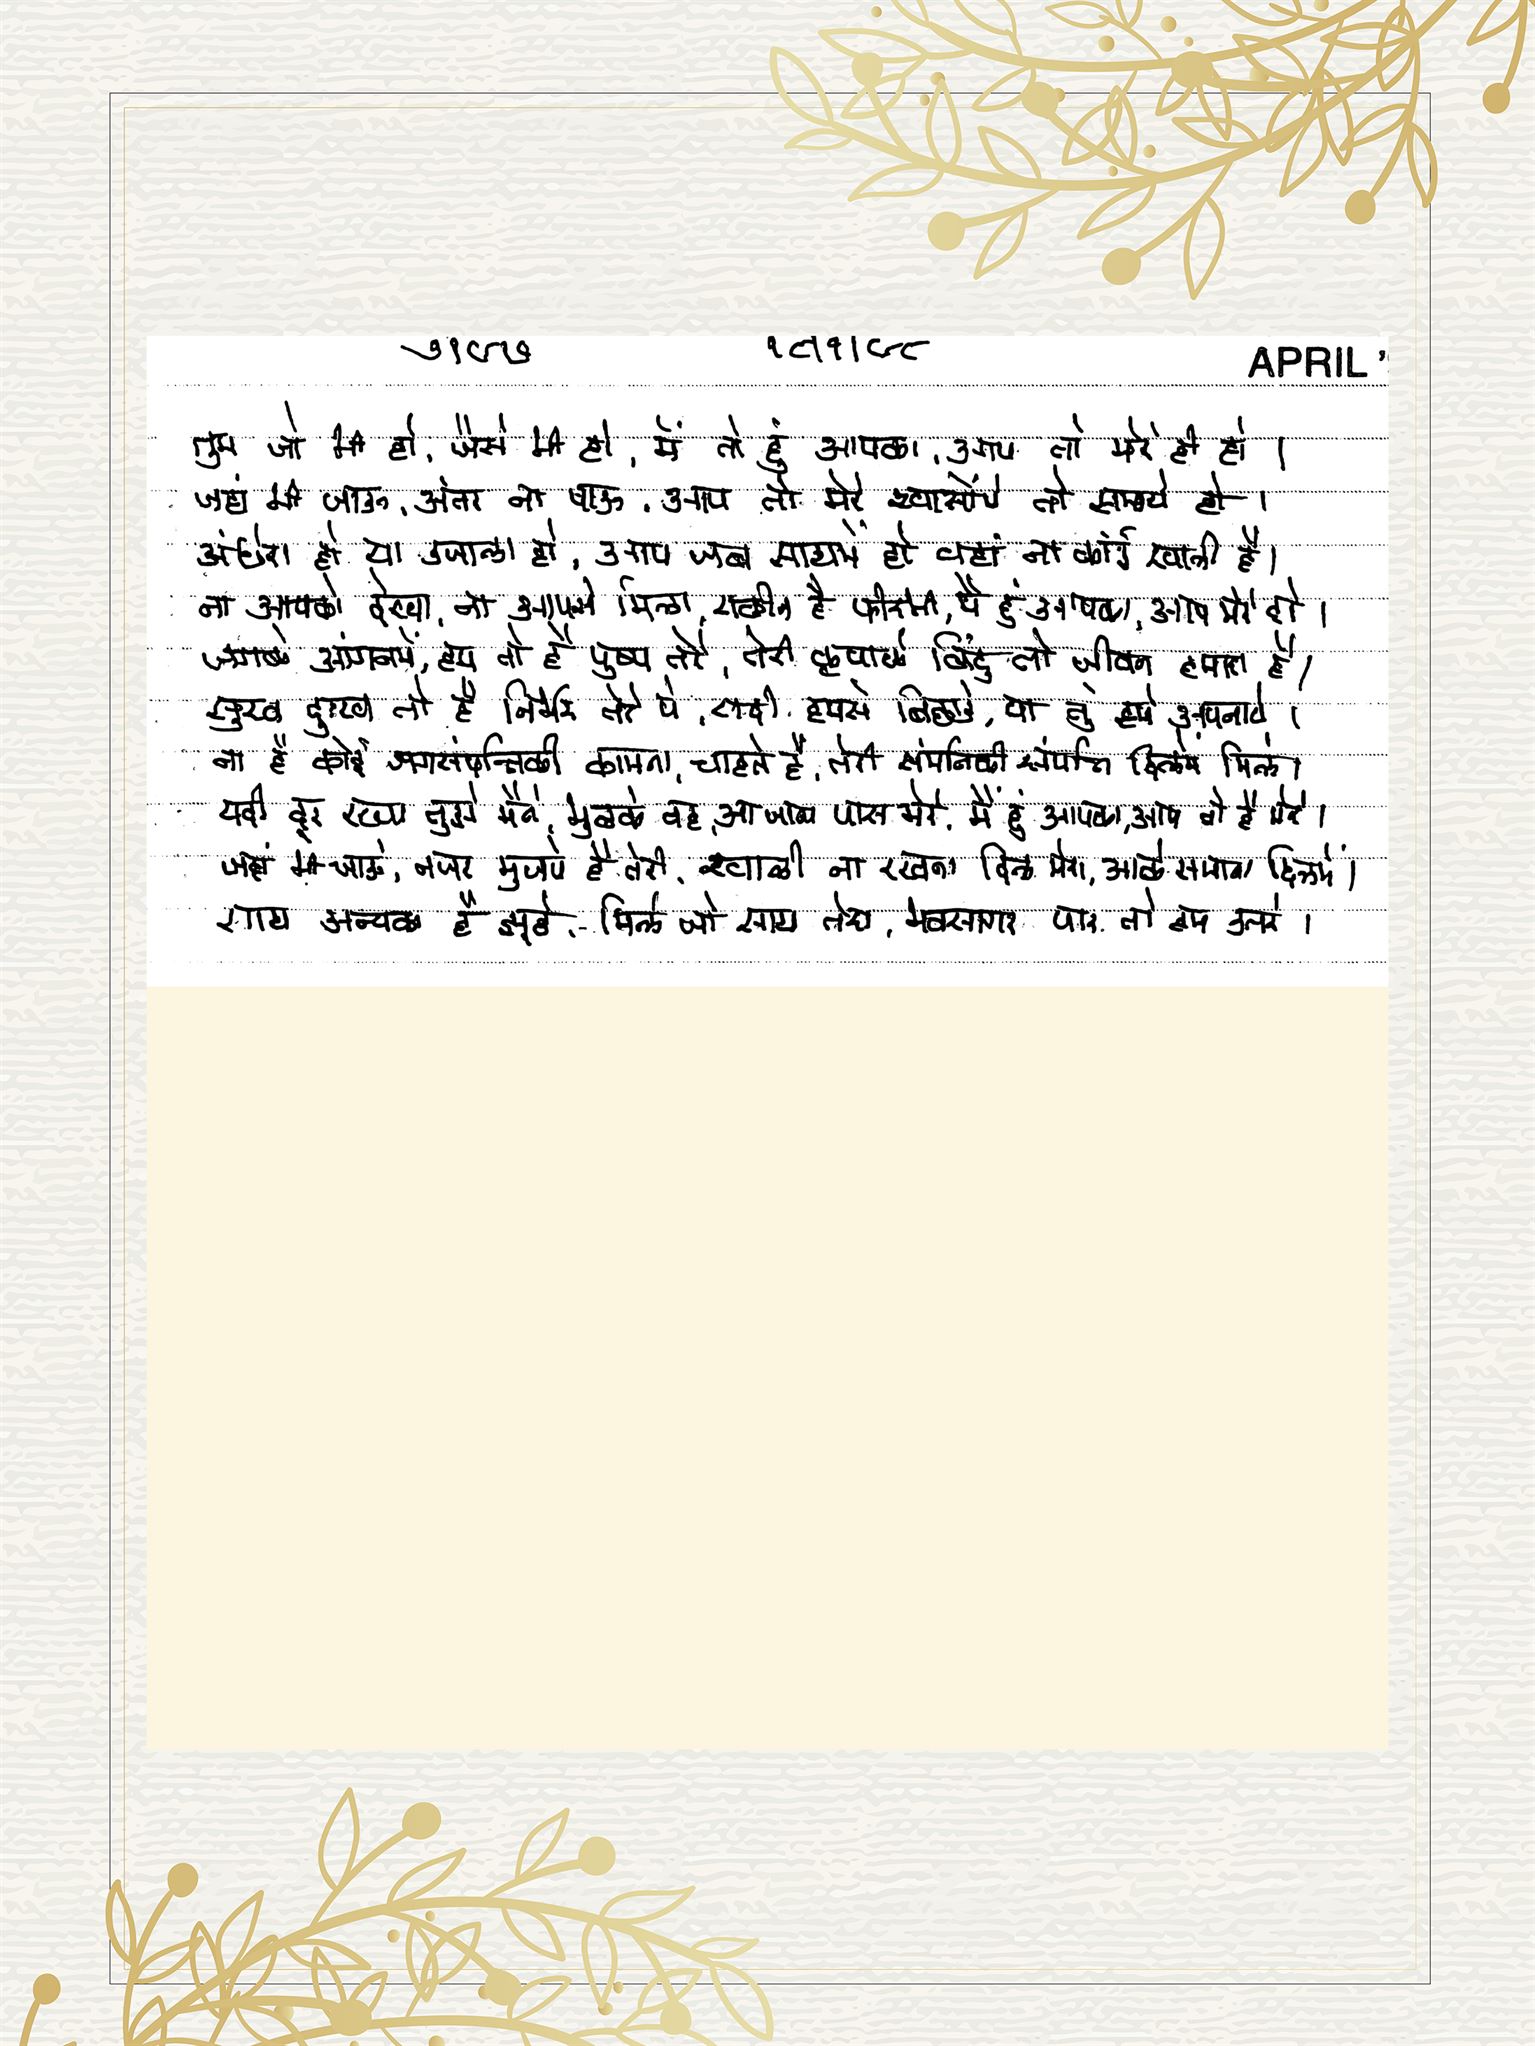 ७१८७ १८।१।८८ APRIL '
तुम जो भी हो, जैसे भी हो, मैं तो हुं आपका, आप तो मेरे ही हो ।
जहां भी जाऊ, अंतर ना पाऊ, आप तो मेरे श्वासोंमें तो समाये हो ।
अंधेरा हो या उजाला हो, आप जब साथमें हो वहां ना कोई खाली है।
ना आपको देखा, ना आपसे मिला, यकीन है फीरभी, मैं हुं आपका, आप मेरे हो ।
जगके आंगनमें, हम तो हैं पुष्प तेरे, तेरी कृपाके बिंदु तो जीवन हमारा है।
सुख दुःख तो है निर्भर तेरे पे, यदी हमसे बिछडे, या तुं हमे अपनाये ।
ना है कोई जगसंपत्तिकी कामना, चाहते हैं, तेरी संपत्तिकी संपत्ति दिलमें मिले।
यदी दूर रख्खा तुझे मैंने, भुलके वह, आ जाना पास मेरे, मैं हुं आपका, आप तो है मेरे ।
जहां भी जाऊं, नजर मुजपे है तेरी, खाली ना रखना दिल मेरा, आके समाना दिलमें।
साथ अन्यके है झूठे, मिले जो साथ तेरा, भवसागर पार तो हम उतरे ।